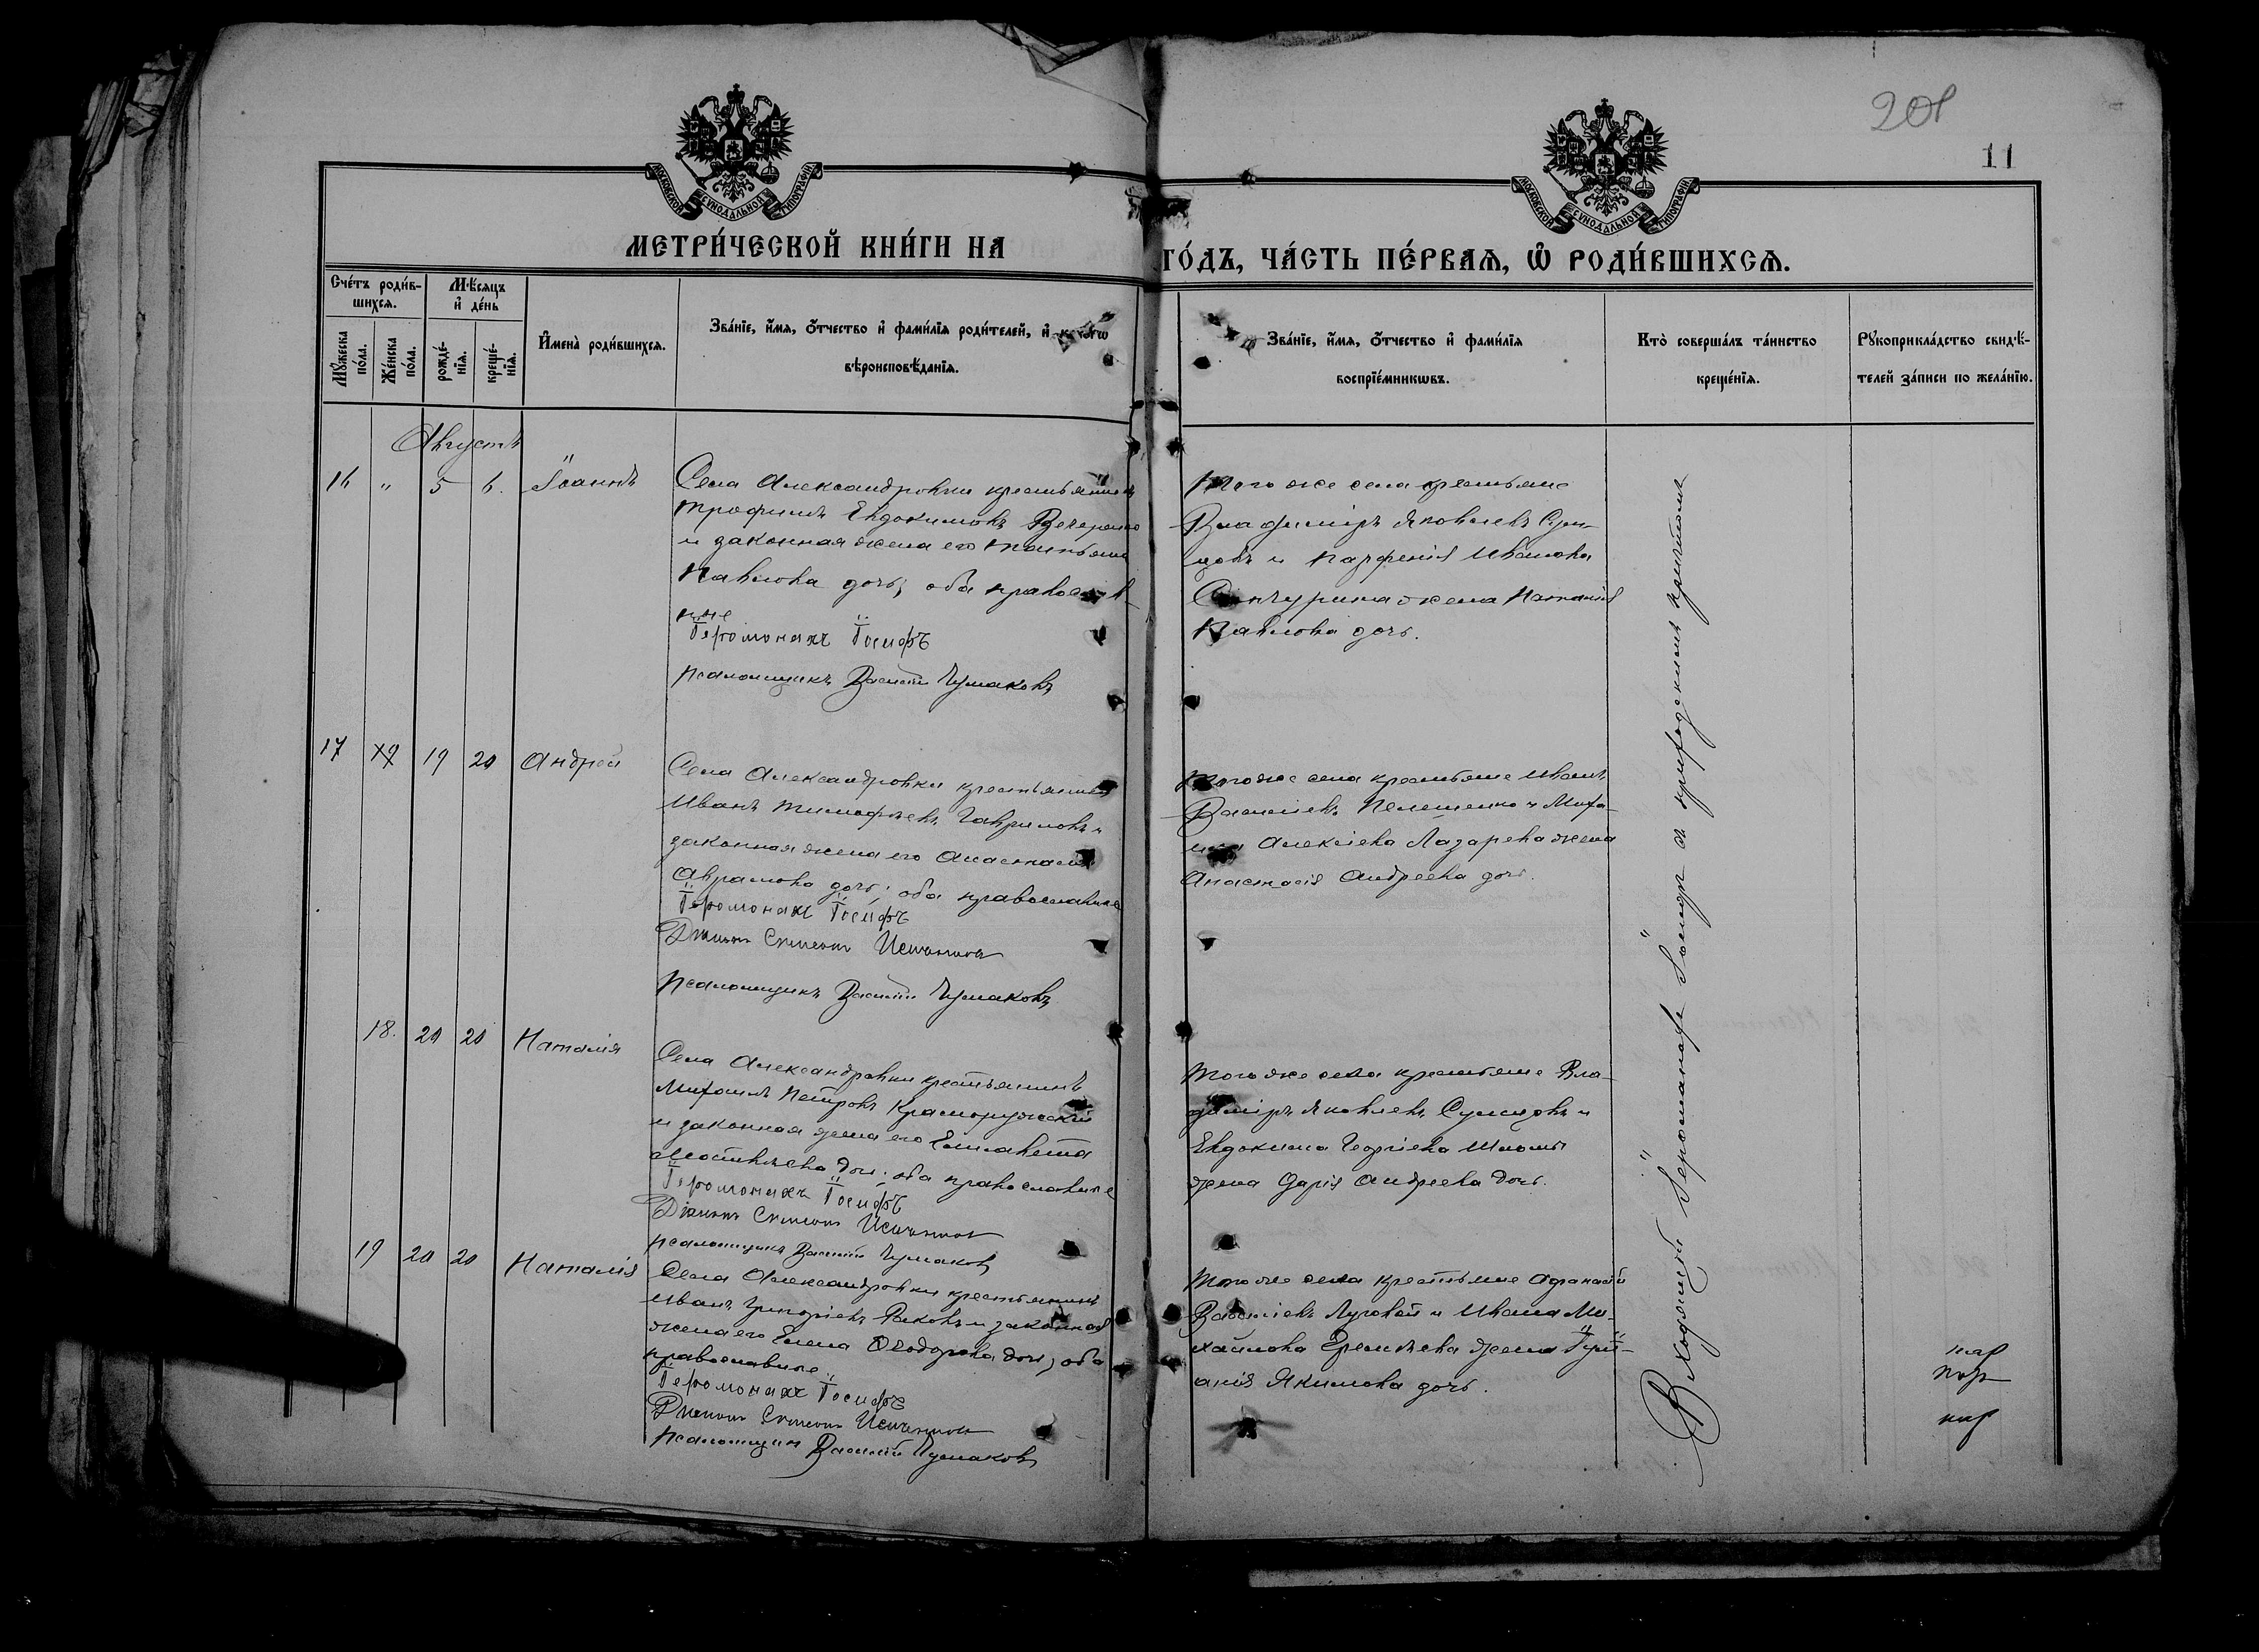 201
11
МОСКОВСКОЙ СѴНОДАЛЬНОЙ ТИПОГРАФІИ
МОСКОВСКОЙ СѴНОДАЛЬНОЙ ТИПОГРАФІИ
МЕТРИ́ЧЕСКОЙ КНИ́ГИ НА
ГО́ДЪ, ЧА́СТЬ ПЕ́РВАѦ, Ѽ РОДИ́ВШИХСѦ.
Сче́тъ роди́в-
шихсѧ.
Мꙋжеска
по́ла.
Же́нска
по́ла.
Мѣ́сѧцъ
и҆ де́нь
рожде́-
нїѧ.
креще́-
нїѧ.
И҆мена̀ роди́вшихсѧ.
Зва́нїе, и҆́мѧ, ѻ҆́тчество и҆ фами́лїѧ роди́телей, и҆
вѣроисповѣ́данїѧ.
Зва́нїе, и҆́мѧ, ѻ҆́тчество и҆ фами́лїѧ
воспрїе́мникѡвъ.
Кто̀ соверша́лъ та́инство
креще́нїѧ.
Рꙋкоприкла́дство свидѣ́-
телей за́писи по жела́нїю.
Августъ
16 " 5 6. Іоаннъ
Села Александровки крестьянинъ
Трофимъ Евдокимовъ
и законная жена его Татьяна
Павлова дочь; оба православ-
ные
Іеромонахъ Іосифъ
псаломщикъ Василій Чумаковъ
Того же села крестьяне
Владиміръ Яковлевъ Сум-
цовъ и Парфенія Иванова
жена
Павлова дочь.
17 19 20 Андрей
Села Александровки крестьянинъ
Иванъ Тимофѣевъ Гавриловъ и
законная жена его Анастасія
Аврамова дочь; оба православные
Іеромонахъ Іосифъ
Псаломщикъ Василій Чумаковъ
Того же села крестьяне Иванъ
Васильевъ Пелешенко и Миха-
ила Алексіева Лазарева жена
Анастасія Андреева дочь.
18. 20 20 Наталія
Села Александровки крестьянинъ
Михаилъ Петровъ Красноружскій
и законная жена его Елисавета
Матвѣева дочь; оба православные
Іеромонахъ Іосифъ
псаломщикъ Василій Чумаковъ
Того же села крестьяне Вла-
диміръ Яковлевъ Сумцовъ и
Евдокима Георгіева
жена Дарія Андреева дочь.
19 20 20 Наталія
Села Александровки крестьянинъ
Иванъ Григоріевъ Раковъ и законная
жена его Елена Ѳеодорова дочь; оба
православные
Іеромонахъ Іосифъ
псаломщикъ Василій Чумаковъ
Того же села крестьяне Афанасій
Васильевъ Луговой и Ивана Ми-
хайлова Еремѣева жена
Якимова дочь.
Іеромонахъ Іосифъ съ приходскимъ причтомъ